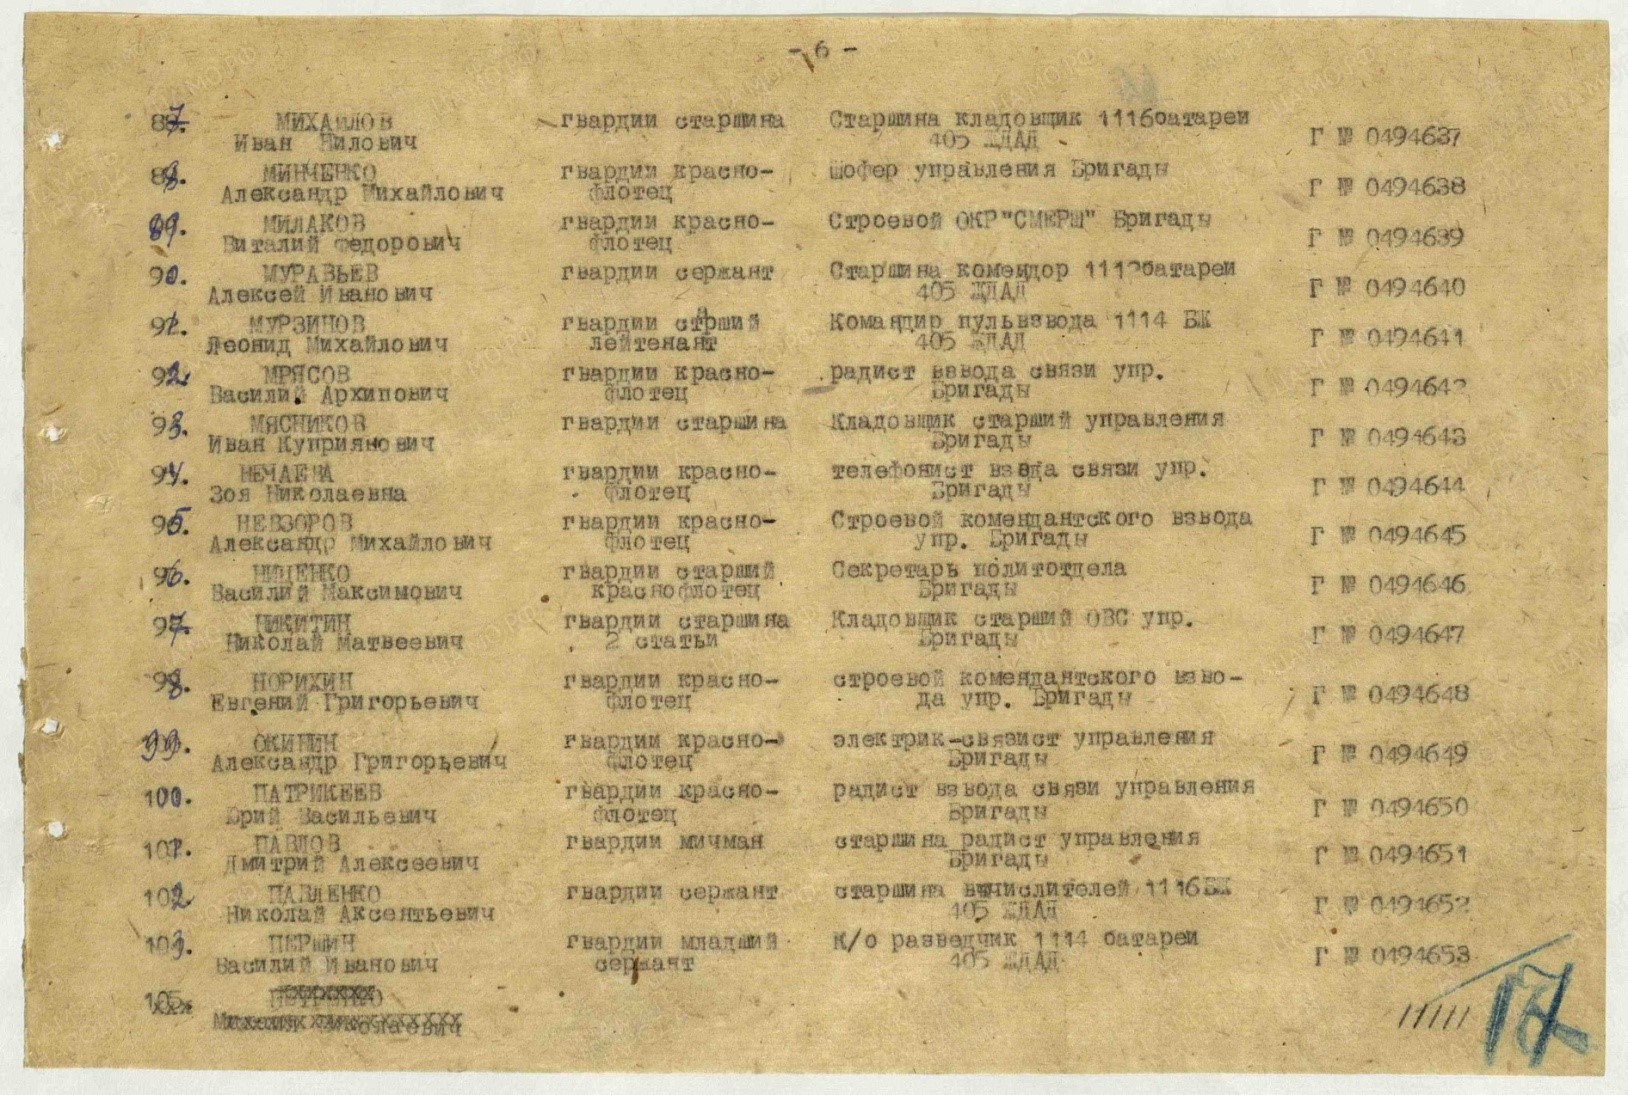 - 6 -
87. МИХАЙЛОВ гвардии старшина Старшина кладовщик 1116батареи
Иван Нилович 405 ЖДАД Г № 0494637
88. МИНЧЕНКО гвардии красно- Шофер управления Бригады
Александр Михайлович флотец Г № 0494638
89. МИЛАКОВ гвардии красно- Строевой ОКР"СМЕРШ" Бригады
Виталий Федорович флотец Г № 0494639
90. МУРАВЬЕВ гвардии сержант Старшина комендор 1112батареи
Алексей Иванович 405 ЖДАД Г № 0494640
91. МУРЗИНОВ гвардии стрший Командир пульвзвода 1114 БЖ
Леонид Михайлович лейтенант 405 ЖДАД Г № 0494641
92. МРЯСОВ гвардии красно- радист взвода связи упр.
Василий Архипович флотец Бригады Г № 0494642
93. МЯСНИКОВ гвардии старшина Кладовщик старший управления
Иван Куприянович Бригады Г № 0494643
94. НЕЧАЕВА гвардии красно- телефонист взвода связи упр.
Зоя Николаевна флотец Бригады Г № 0494644
95. НЕВЗОРОВ гвардии красно- Строевой комендантского взвода
Александр Михайлович флотец упр. Бригады Г № 0494645
96. НИЩЕНКО гвардии старший Секретарь политотдела
Василий Максимович краснофлотец Бригады Г № 0494646
97. НИКИТИН гвардии старшина Кладовщик старший ОВС упр.
Николай Матвеевич 2 статьи Бригады Г № 0494647
98. НОРИХИН гвардии красно- строевой комендантского взво-
Евгений Григорьевич флотец да упр. Бригады Г № 0494648
99. ОКИНИН гвардии красно- электрик-связист управления
Александр Григорьевич флотец Бригады Г № 0494649
100. ПАТРИКЕЕВ гвардии красно- радист взвода связи управления
Юрий Васильевич флотец Бригады Г № 0494650
101. ПАВЛОВ гвардии мичман старшина радист управления
Дмитрий Алексеевич Бригады Г № 0494651
102 ПАВЛЕНКО гвардии сержант старшина вычислителей 1116БЖ
Николай Аксентьевич 405 ЖДАД Г № 0494652
103. ПЕРШИН гвардии младший К/о разведчик 1114 батареи
Василий Иванович сержант 405 ЖДАД Г № 0494653
105.
Николаевич
17